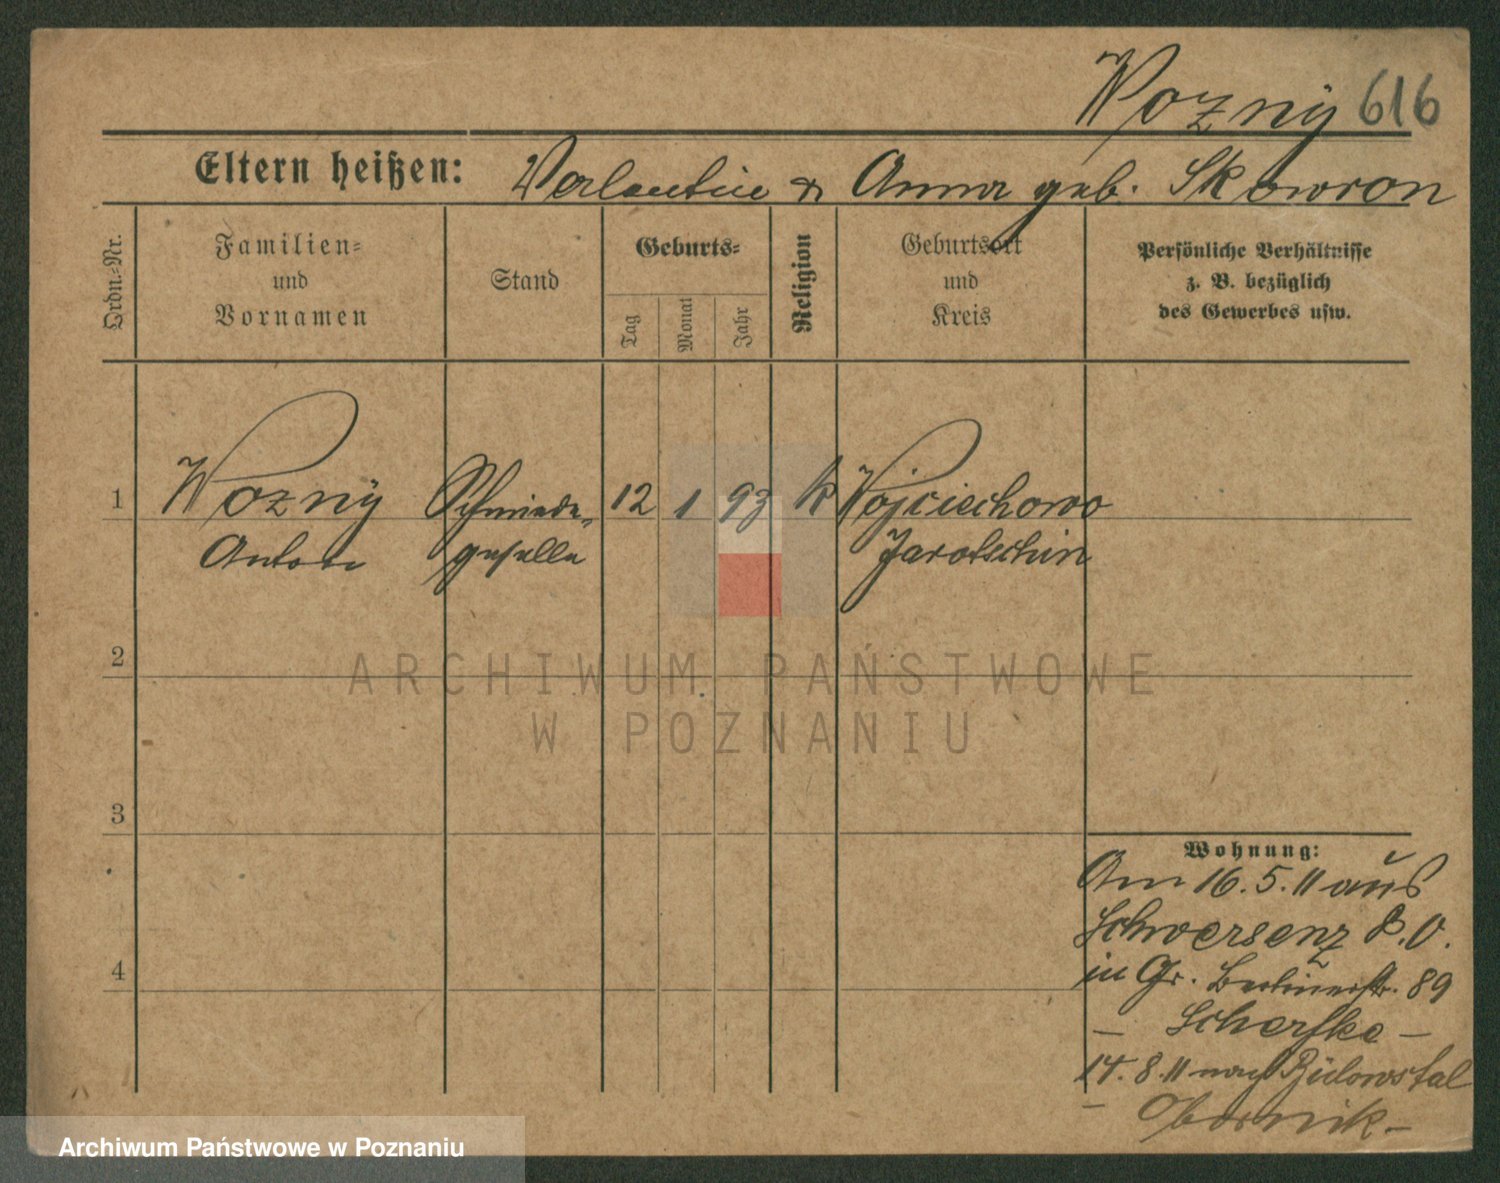 Wozny 616
Eltern heißen: Valentin & Anna geb. Skowron
Ordn.=Nr.
Familien=
und
Vornamen
Stand
Geburts=
Tag
Monat
Jahr
Religion
Geburtsort
und
Kreis
Persönliche Verhältnisse
z. B. bezüglich
des Gewerbes usw.
1 Wozny Schmiede- 12 1 93 k Wojciechowo
Anton geselle Jarotschin
2
3
4
ARCHIWUM PAŃSTWOWE
W POZNANIU
Wohnung:
Am 16.5.11 aus
Schwersenz P.O.
in Gr. Berlinerstr. 89
– Scherfke –
14.8.11 nach Bülowstal
– Obornik –
Archiwum Państwowe w Poznaniu